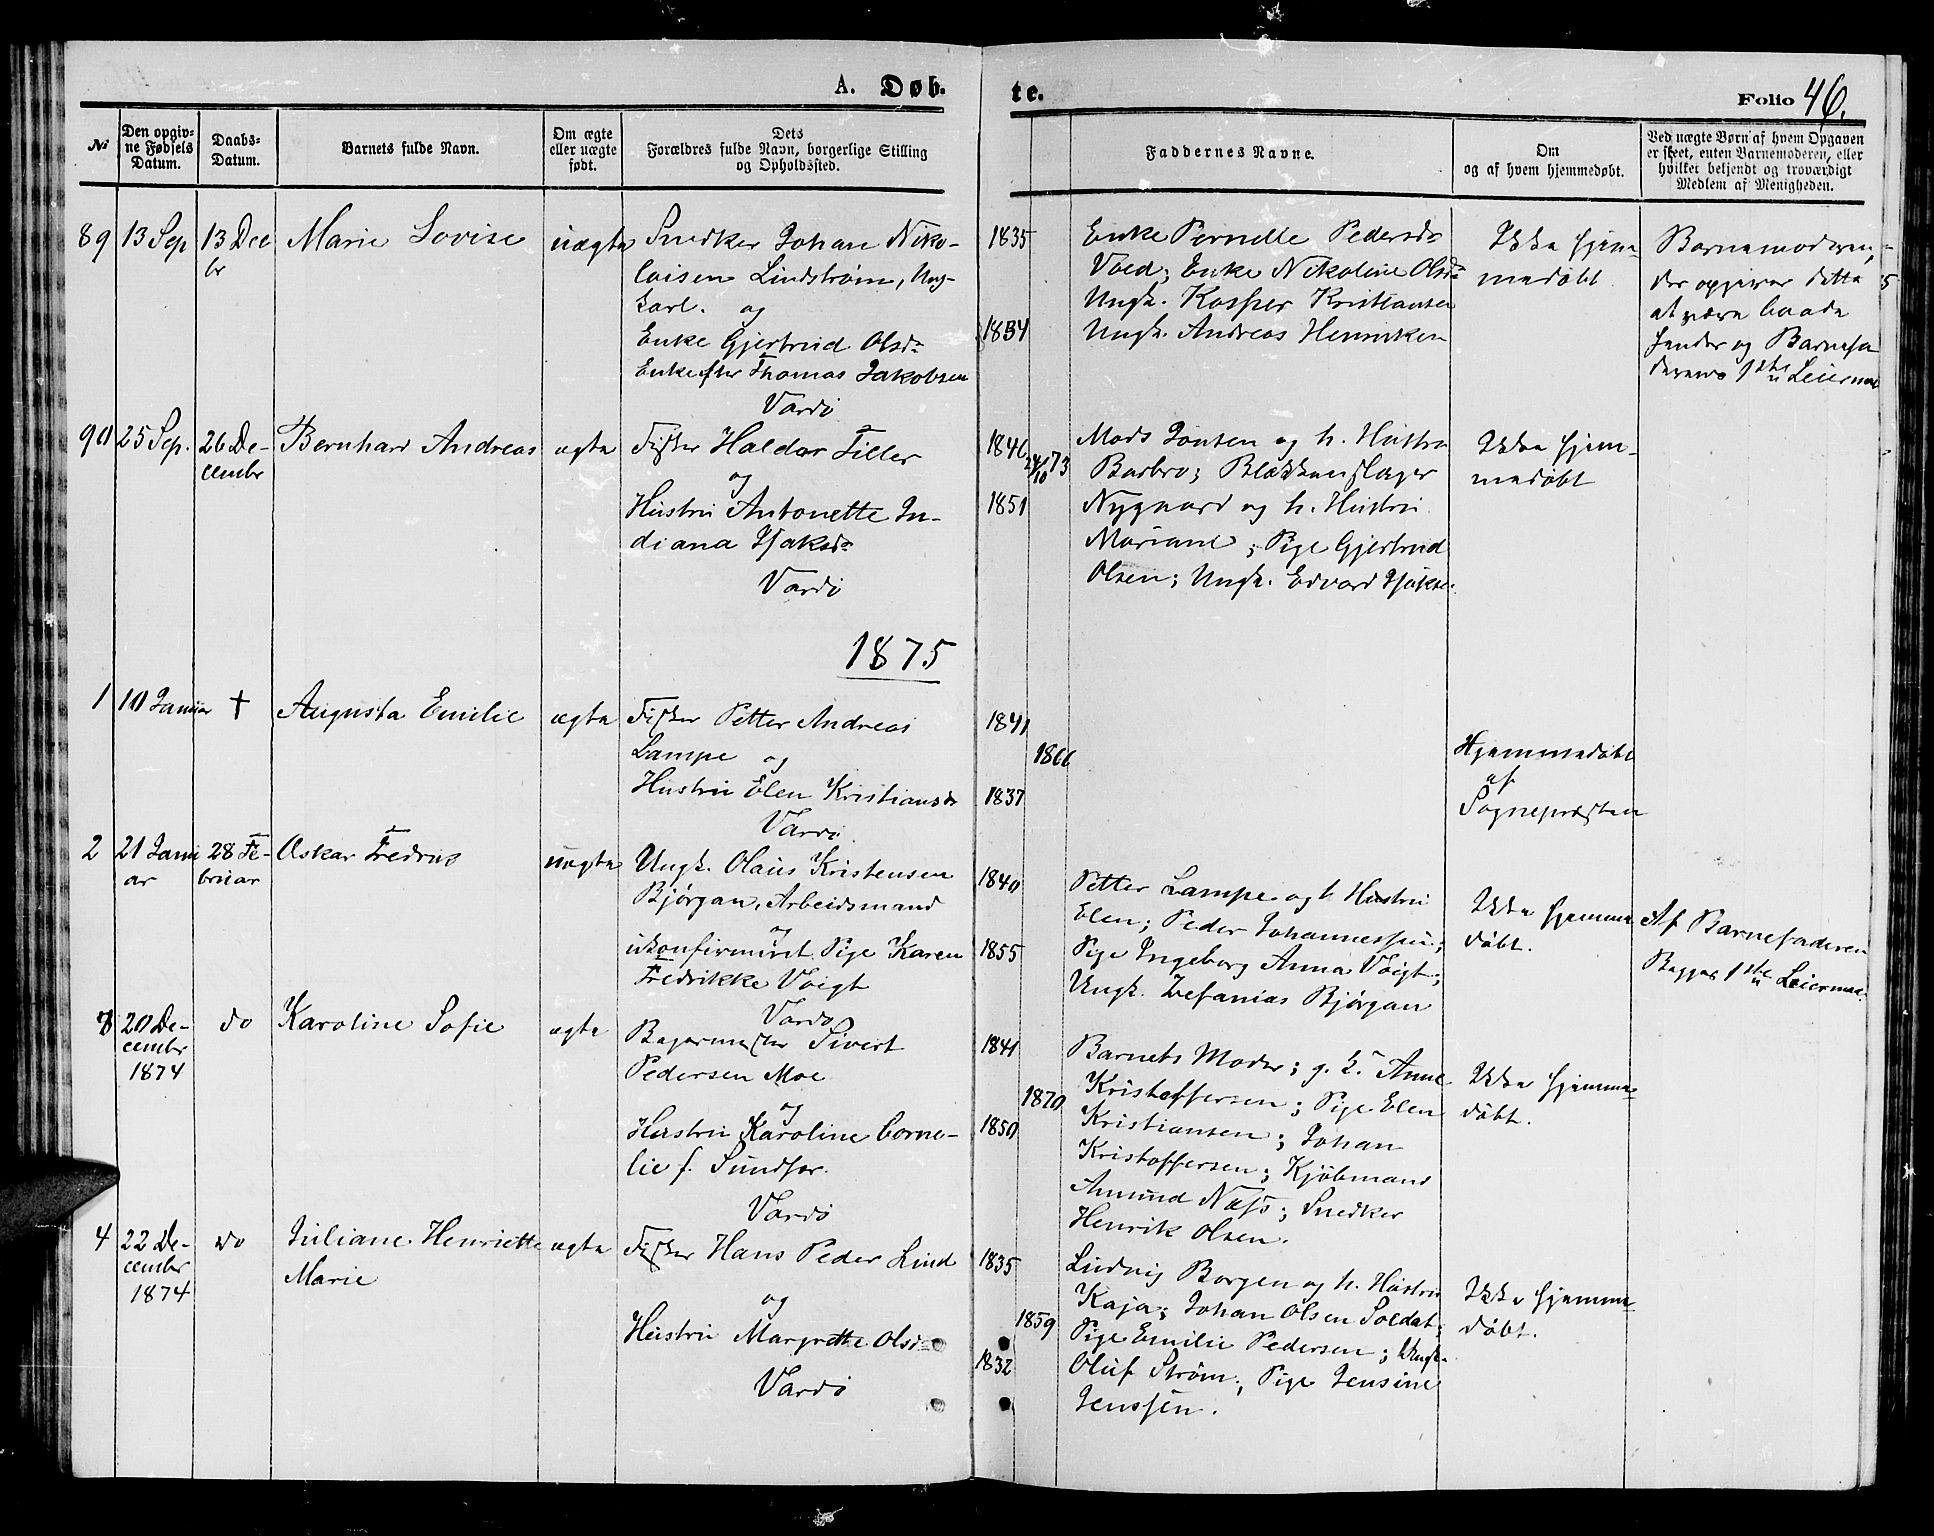 A. Døb-
te.
Folio 46.
No
Den opgiv-
ne Fødsels
Datum.
Daabs-
Datum.
Barnets fulde Navn.
Om ægte
eller uægte
født.
Dets
Forældres fulde Navn, borgerlige Stilling
og Opholdssted.
Faddernes Navne.
Om
og af hvem hjemmedøbt.
Ved uægte Børn af hvem Opgaven
er skeet, enten Barnemoderen, eller
hvilket bekjendt og troværdigt
Medlem af Menigheden.
89
13 Sep
13 De
br
Marie Lovise
uægte
Snedker Johan Niko-
laisen Lindstrøm, Ung-
karl. og
Enke Gjertrud Olsdr
Enke efter Thomas Jakobsen
Vardö
1835
1834
Enke Pernelle Pedersdr
Enke Nikoline Olsdr
Ungk. Kasper Kristiansen
Ungk. Andreas Henriksen
Ikke hjem-
medøbt.
Barnemoderen,
der opgiver dette
at være baade
hendes og Barnefa
derens 1ste Leiermaal
90
25 Sep.
26 De-
cembr
Bernhard Andreas
ægte
Fisker Haldor Tiller
og
Hustru Antonette In-
diana Isaksdr
Vardö
1846
24/10 73
1851
Mads Jonsen og h. Hustru
Barbro; Blekkenslager
Nygaard og h. Hustru
Mariane; Pige Gjertrud
Olsen; Ungk. Edvard Isaksen
Ikke hjem-
medøbt
1875
1
10 Januar
†
Augusta Emilie
ægte
Fisker Petter Andreas
Lampe og
Hustru Elen Kristiansdr
Vardö
1841
1866
1837
Hjemmedøbt
af
Sognepræsten
2
21 Janu
ar
28 Fe-
bruar
Oskar Fredrik
uægte
Ungk. Olaus Kristensen
Bjørgan, Arbeidsmand
og
ukonfirmeret Pige Karen
Fredrikke Voigt
Vardö
1840
1855
Petter Lampe og h Hustru
Elen; Peder Johannessen;
Pige Ingeborg Anna Voigt;
Ungk. Zefanias Bjørgan
Ikke hjemme
døbt.
Af Barnefaderen
Begges 1ste Leiermaal.
3
20 De-
cembr
1874
do
Karoline Sofie
ægte
Bagermester Sivert
Pedersen Moe
og
Hustru Karoline Corne-
lie f. Sundfør.
Vardö
1841
1870
1850
Barnets Moder; g. K. Anne
Kristoffersen; Pige Elen
Kristiansen; Johan
Kristoffersen; Kjöbmand
Amund Næss; Snedker
Henrik Olsen.
Ikke hjemme-
døbt.
4
22 De-
cembr
1874
do
Juliane Henriette
Marie
ægte
Fisker Hans Peder Lind
og
Hustru Margrette Olsdr
Vardö
1835
1859
1832
Ludvig Borgen og h. Hustru
Kaja; Johan Olsen Soldat;
Pige Emilie Pedersen; Ungk.
Oluf Strøm; Pige Jensine
Jenssen.
Ikke hjemme-
døbt.